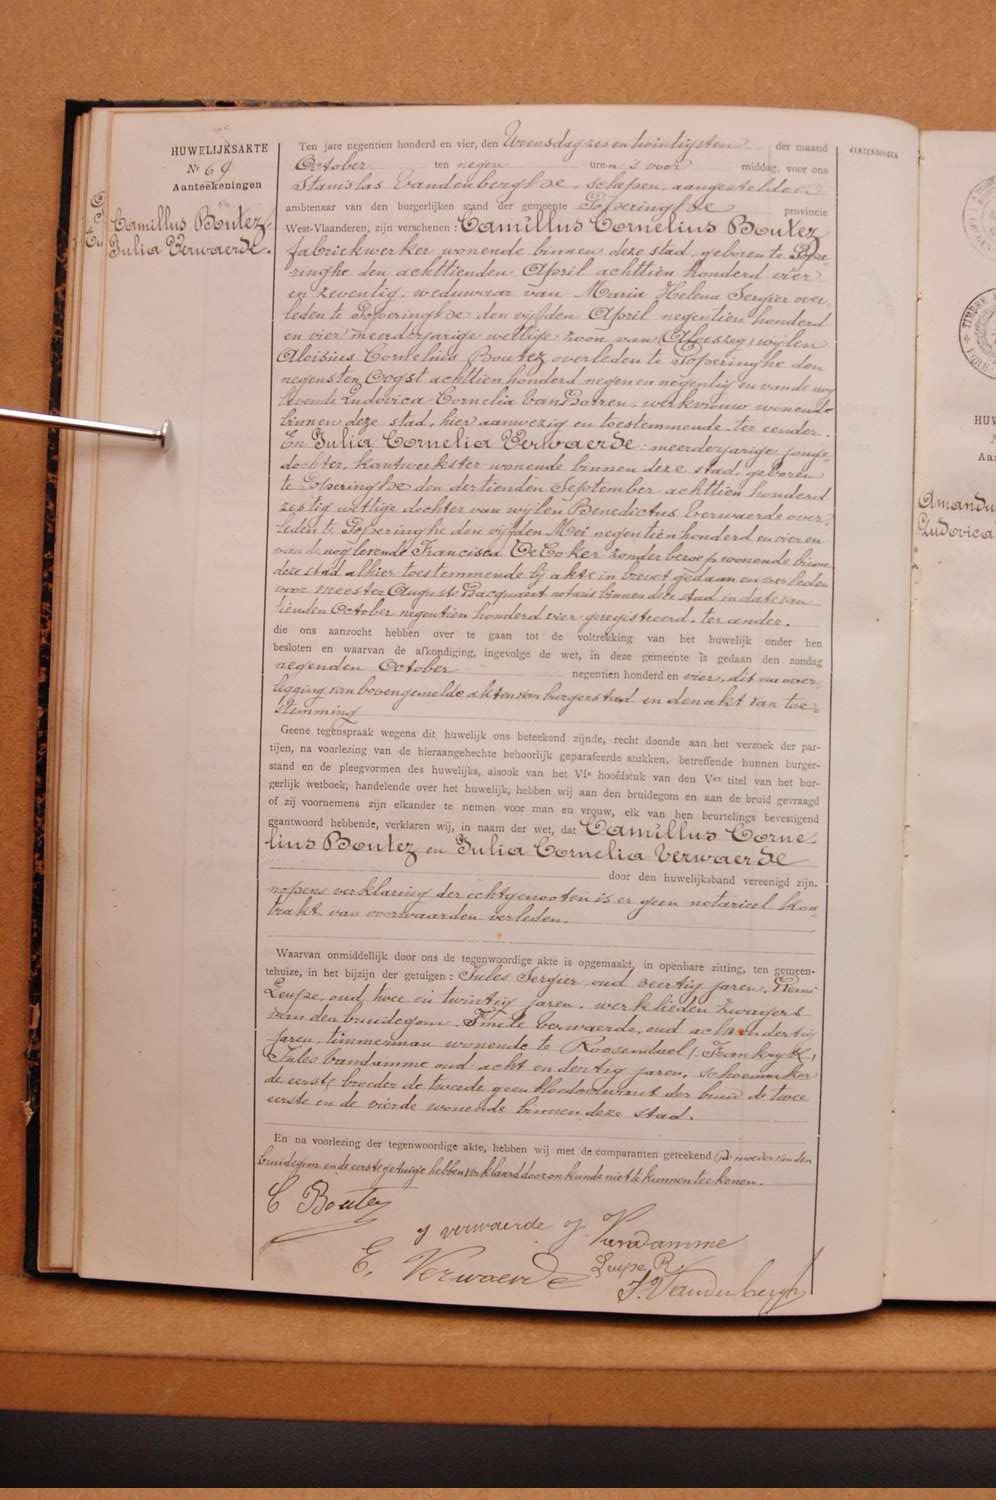 HUWELIJKSAKTE
Nr 69
Aanteekeningen
Camillus Boutez
Julia Verwaerde.
Ten jare negentien honderd en vier, den Woensdag zes en twintigsten der maand
October ten negen uren s voor middag, voor ons
Stanislas Vandenberghe, schepen, aangestelden
ambtenaar van den burgerlijken stand der gemeente Poperinghe provincie
West-Vlaanderen, zijn verschenen : Camillus Cornelius Boutez
fabriekwerker wonende binnen deze stad, geboren te Pope-
ringhe den achttienden April achttien honderd vier
en zeventig, weduwaar van Maria Helena Sergier over
leden te Poperinghe den vijfden April negentien honderd
en vier meerderjarige wettige zoon van (Aloïs zeg) wijlen
Aloisius Cornelius Boutez overleden te Poperinghe den
negensten Oogst achttien honderd negen en negentig en van de nog
levende Ludovica Cornelia Van Borren, werkvrouw wonende
binnen deze stad, hier aanwezig en toestemmende. ter eender.
En Julia Cornelia Verwaerde meerderjarige jonge-
dochter, kantwerkster wonende binnen deze stad, geboren
te Poperinghe den dertienden September achttien honderd
zestig wettige dochter van wijlen Benedictus Verwaerde over-
leden te Poperinghe den vijfden Mei negentien honderd en vier en
van de nog levende Francisca De Coker zonder beroep wonende binnen
deze stad alhier toestemmende bij akte in brevet gedaan en verleden
voor meester Auguste Bacquaert notaris binnen deze stad in date van
tienden October negentien honderd vier geregistreerd. ter ander.
die ons aanzocht hebben over te gaan tot de voltrekking van het huwelijk onder hen
besloten en waarvan de afkondiging, ingevolge de wet, in deze gemeente is gedaan den zondag
negenden October negentien honderd en vier, dit na over-
legging van bovengemelde akten van burgerstand en den akt van toe-
stemming
Geene tegenspraak wegens dit huwelijk ons beteekend zijnde, recht doende aan het verzoek der par-
tijen, na voorlezing van de hieraangehechte behoorlijk geparafeerde stukken, betreffende hunnen burger-
stand en de pleegvormen des huwelijks, alsook van het VIe hoofdstuk van den Ven titel van het bur-
gerlijk wetboek, handelende over het huwelijk, hebben wij aan den bruidegom en aan de bruid gevraagd
of zij voornemens zijn elkander te nemen voor man en vrouw, elk van hen beurtelings bevestigend
geantwoord hebbende, verklaren wij, in naam der wet, dat Camillus Corne-
lius Boutez en Julia Cornelia Verwaerde
door den huwelijksband vereenigd zijn.
nopens verklaring der echtgenooten is er geen notarieel kon-
trakt van voorwaarden verleden.
Waarvan onmiddellijk door ons de tegenwoordige akte is opgemaakt, in openbare zitting, ten gemeen-
tehuize, in het bijzijn der getuigen : Jules Sergier oud veertig jaren, Remi
Leupe, oud twee en twintig jaren, werklieden zwagers
van den bruidegom. Emile Verwaerde, oud acht en dertig
jaren, timmerman wonende te Roosendael (Frankrijk)
Jules Vandamme oud acht en dertig jaren, schoenmaker
de eerste broeder de tweede geen bloedverwant der bruid de twee
eerste en de vierde wonende binnen deze stad.
En na voorlezing der tegenwoordige akte, hebben wij met de comparanten geteekend de moeder van den
bruidegom en de eerste getuige hebben verklaard door onkunde niet te kunnen teekenen.
C Boutez
j verwaerde j Vandamme
E. Verwaerde Leupe R.
S. Vandenberghe
HUW
Aan
Amandu
Ludovica
TIMBRE